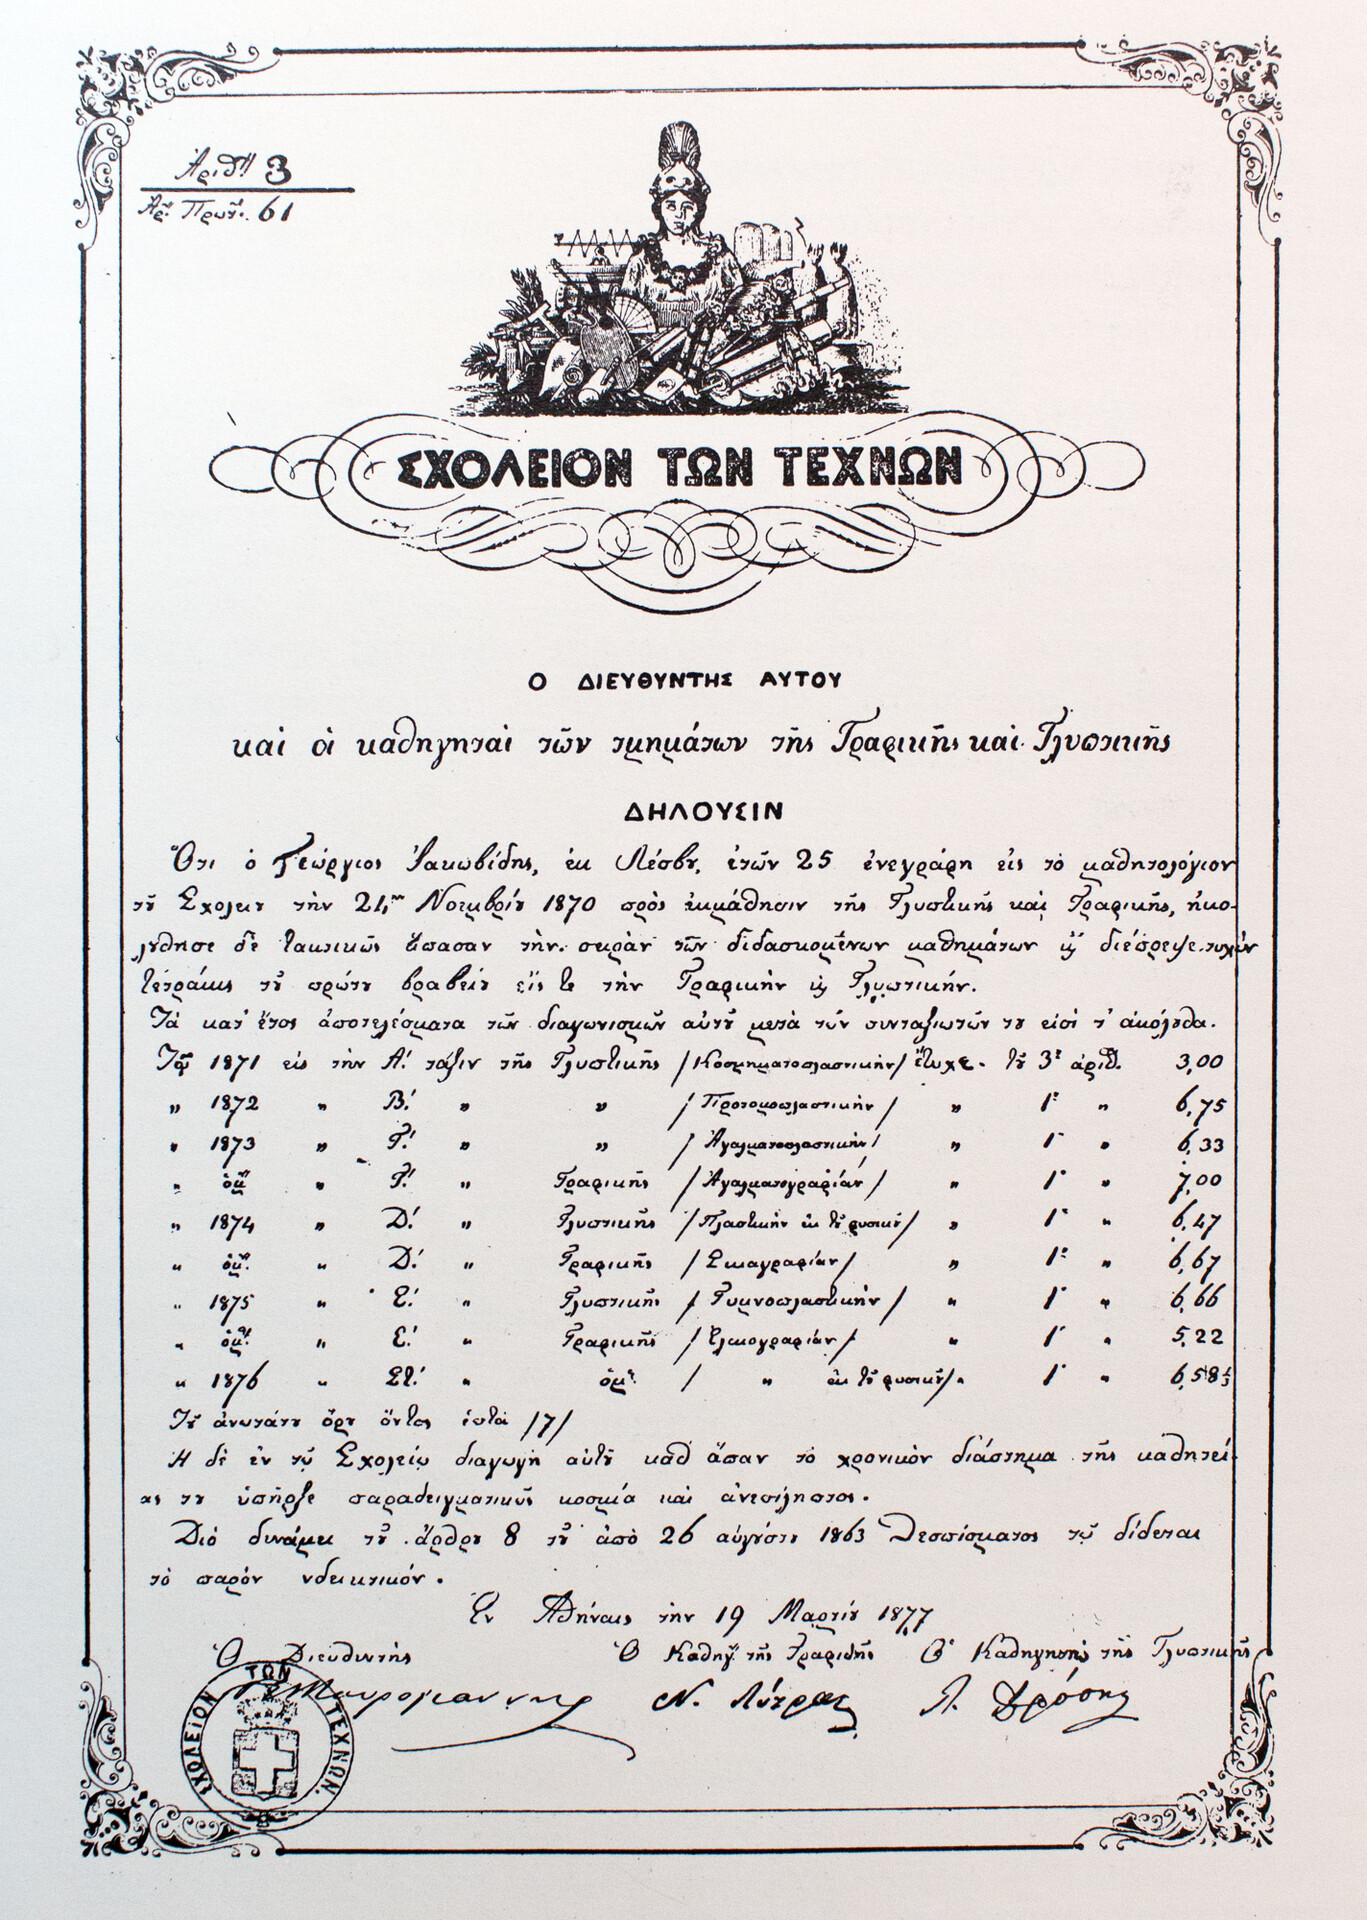 Ἀριθ. 3
Ἀρ. Πρωτ. 61
ΣΧΟΛΕΙΟΝ ΤΩΝ ΤΕΧΝΩΝ
Ο ΔΙΕΥΘΥΝΤΗΣ ΑΥΤΟΥ
καὶ οἱ καθηγηταὶ τῶν τμημάτων τῆς Γραφικῆς καὶ Γλυπτικῆς
ΔΗΛΟΥΣΙΝ
Ὅτι ὁ Γεώργιος Ἰακωβίδης, ἐκ Λέσβου, ἐτῶν 25 ἐνεγράφη εἰς τὸ μαθητολόγιον
τοῦ Σχολείου τὴν 21ην Νοεμβρίου 1870 πρὸς ἐκμάθησιν τῆς Γλυπτικῆς καὶ Γραφικῆς, ἠκο-
λούθησε δὲ τακτικῶς ἅπασαν τὴν σειρὰν τῶν διδασκομένων μαθημάτων καὶ διέπρεψε τυχὼν
τετράκις τοῦ πρώτου βραβείου εἴς τε τὴν Γραφικὴν καὶ Γλυπτικήν.
Τὰ κατ' ἔτος ἀποτελέσματα τῶν διαγωνισμῶν αὐτοῦ μετὰ τῶν συνταξιωτῶν του εἰσὶ τ' ἀκόλουθα.
Τῷ 1871 εἰς τὴν Α΄. τάξιν τῆς Γλυπτικῆς /Κοσμηματοπλαστικὴν/ ἔτυχε τοῦ 3ου ἀριθ. 3,00
„ 1872 „ Β΄. „ „ /Προτομοπλαστικὴν/ „ 1ου „ 6,75
„ 1873 „ Γ΄. „ „ /Ἀγαλματοπλαστικὴν/ „ 1ου „ 6,33
„ ὁμ. „ Γ΄. „ Γραφικῆς /Ἀγαλματογραφίαν/ „ 1ου „ 7,00
„ 1874 „ Δ΄. „ Γλυπτικῆς /Πλαστικὴν ἐκ τοῦ φυσικοῦ/ „ 1ου „ 6,47
„ ὁμ. „ Δ΄. „ Γραφικῆς /Σκιαγραφίαν/ „ 1ου „ 6,67
„ 1875 „ Ε΄. „ Γλυπτικῆς /Γυμνοπλαστικὴν/ „ 1ου „ 6,66
„ ὁμ. „ Ε΄. „ Γραφικῆς /Ἐλαιογραφίαν/ „ 1ου „ 5,22
„ 1876 „ ΣΤ΄. „ ὁμ. / „ ἐκ τοῦ φυσικοῦ/ „ 1ου „ 6,58 1/3
Τοῦ ἀνωτάτου ὅρου ὄντος ἑπτὰ /7/
Ἡ δὲ ἐν τῷ Σχολείῳ διαγωγὴ αὐτοῦ καθ' ἅπαν τὸ χρονικὸν διάστημα τῆς μαθητεί-
ας του ὑπῆρξε παραδειγματικῶς κοσμία καὶ ἀνεπίληπτος.
Διὸ δυνάμει τοῦ ἄρθρου 8 τοῦ ἀπὸ 26 αὐγούστου 1863 Θεσπίσματος τῷ δίδεται
τὸ παρὸν ἐνδεικτικόν.
Ἐν Ἀθήναις τὴν 19 Μαρτίου 1877
Ὁ Διευθυντὴς Ὁ Καθηγ. τῆς Γραφικῆς Ὁ Καθηγητὴς τῆς Γλυπτικῆς
Μαυρογιάννης Ν. Λύτρας Λ. Δρόσης
ΣΧΟΛΕΙΟΝ ΤΩΝ ΤΕΧΝΩΝ